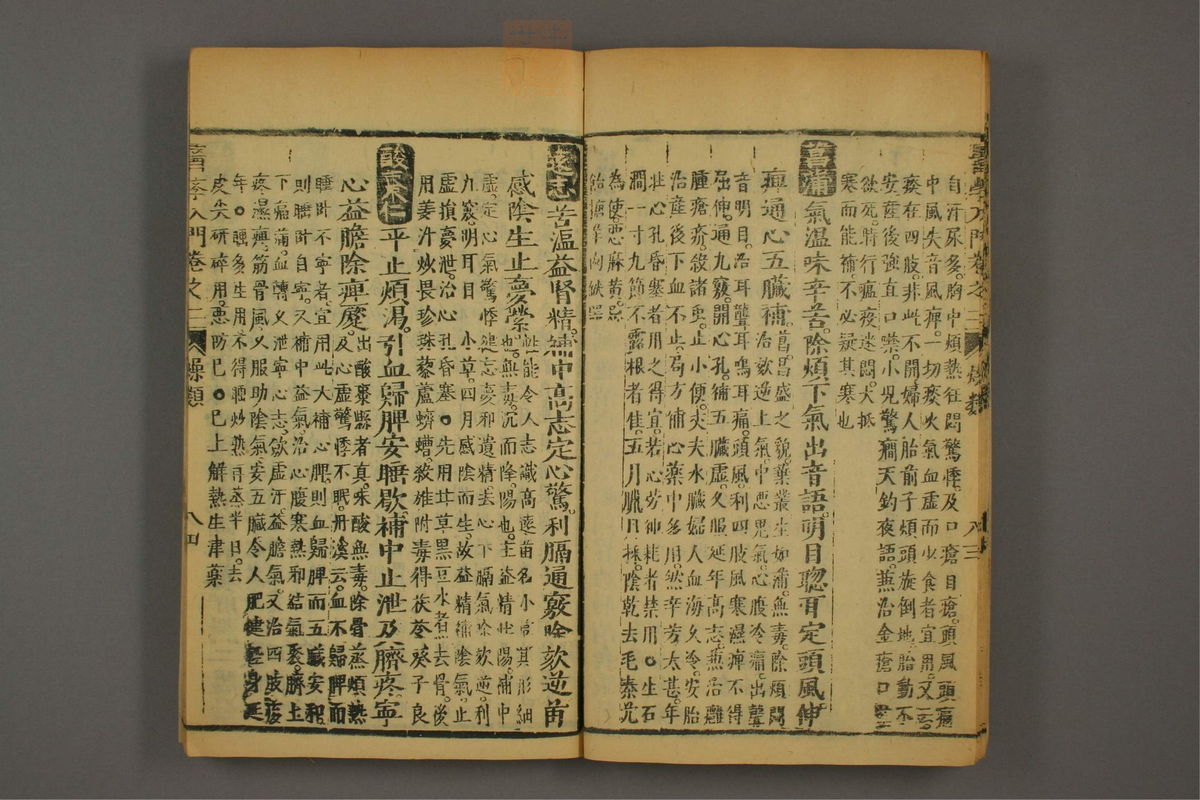 自汗尿多胸中煩熱狂悶驚悸及口瘡目瘡頭風頭痛
中風失音風痹一切痰火氣血虛而少食者宜用又云
痰在四肢非此不開婦人胎前子煩頭旋倒地胎動不
安產後強直口噤小兒驚癇天釣夜語兼治金瘡口噤
欲死特行瘟疫迷悶大抵
寒而能補不必疑其寒也
菖蒲氣溫味辛苦除煩下氣出音語明目聰耳定頭風伸
痹通心五臟補菖昌盛之貌藥叢生如蒲無毒除煩悶
治欬逆上氣中惡鬼氣心腹冷痛出聲
音明目治耳聾耳鳴耳痛頭風利四肢風寒濕痹不得
屈伸通九竅開心孔補五臟虛久服延年高志兼治雞
腫瘡疥殺諸蟲止小便夫夫水臟婦人血海久冷安胎
治產後下血不止局方補心藥中多用然辛芳太甚年
壯心孔昏塞者用之得宜若心勞神耗者禁用○生石
澗一寸九節不露根者佳五月臘日採陰乾去毛秦艽
為使惡麻黃忌
飴糖羊肉鐵器
遠志苦溫益腎精補中高志定心驚利膈通竅除欬逆苗
感陰生止夢縈此能令人志識高遠苗名小草其形細
也無毒沉而降陽也主益精壯陽補中
虛定心氣驚悸健忘夢邪遺精去心下膈氣除欬逆利
九竅明耳目小草四月感陰而生故益精補陰氣止
虛損夢泄治心孔昏塞○先用甘草黑豆水煮去骨後
用姜汁炒畏珍珠藜蘆蠐螬殺雄附毒得茯苓葵子良
酸棗仁平止煩渴引血歸脾安睡歇補中止泄及臍疼寧
心益膽除痹蹷出酸棗縣者真味酸無毒除骨蒸煩熱
及心虛驚悸不眠丹溪云血不歸脾而
睡臥不寧者宜用此大補心脾則血歸脾而五臟安和
則睡臥自寧又補中益氣治心腹寒熱邪結氣聚臍上
下痛滿血轉又泄寧心志斂虛汗益膽氣又治四肢痠
疼濕痹筋骨風又服助陰氣安五臟令人肥健輕身延
年○睡多生用不得睡炒熟再蒸半日去
皮尖研碎用惡防已○已上解熱生津藥
醫學入門卷之二
燥類
八四
醫學入門卷之二
燥類